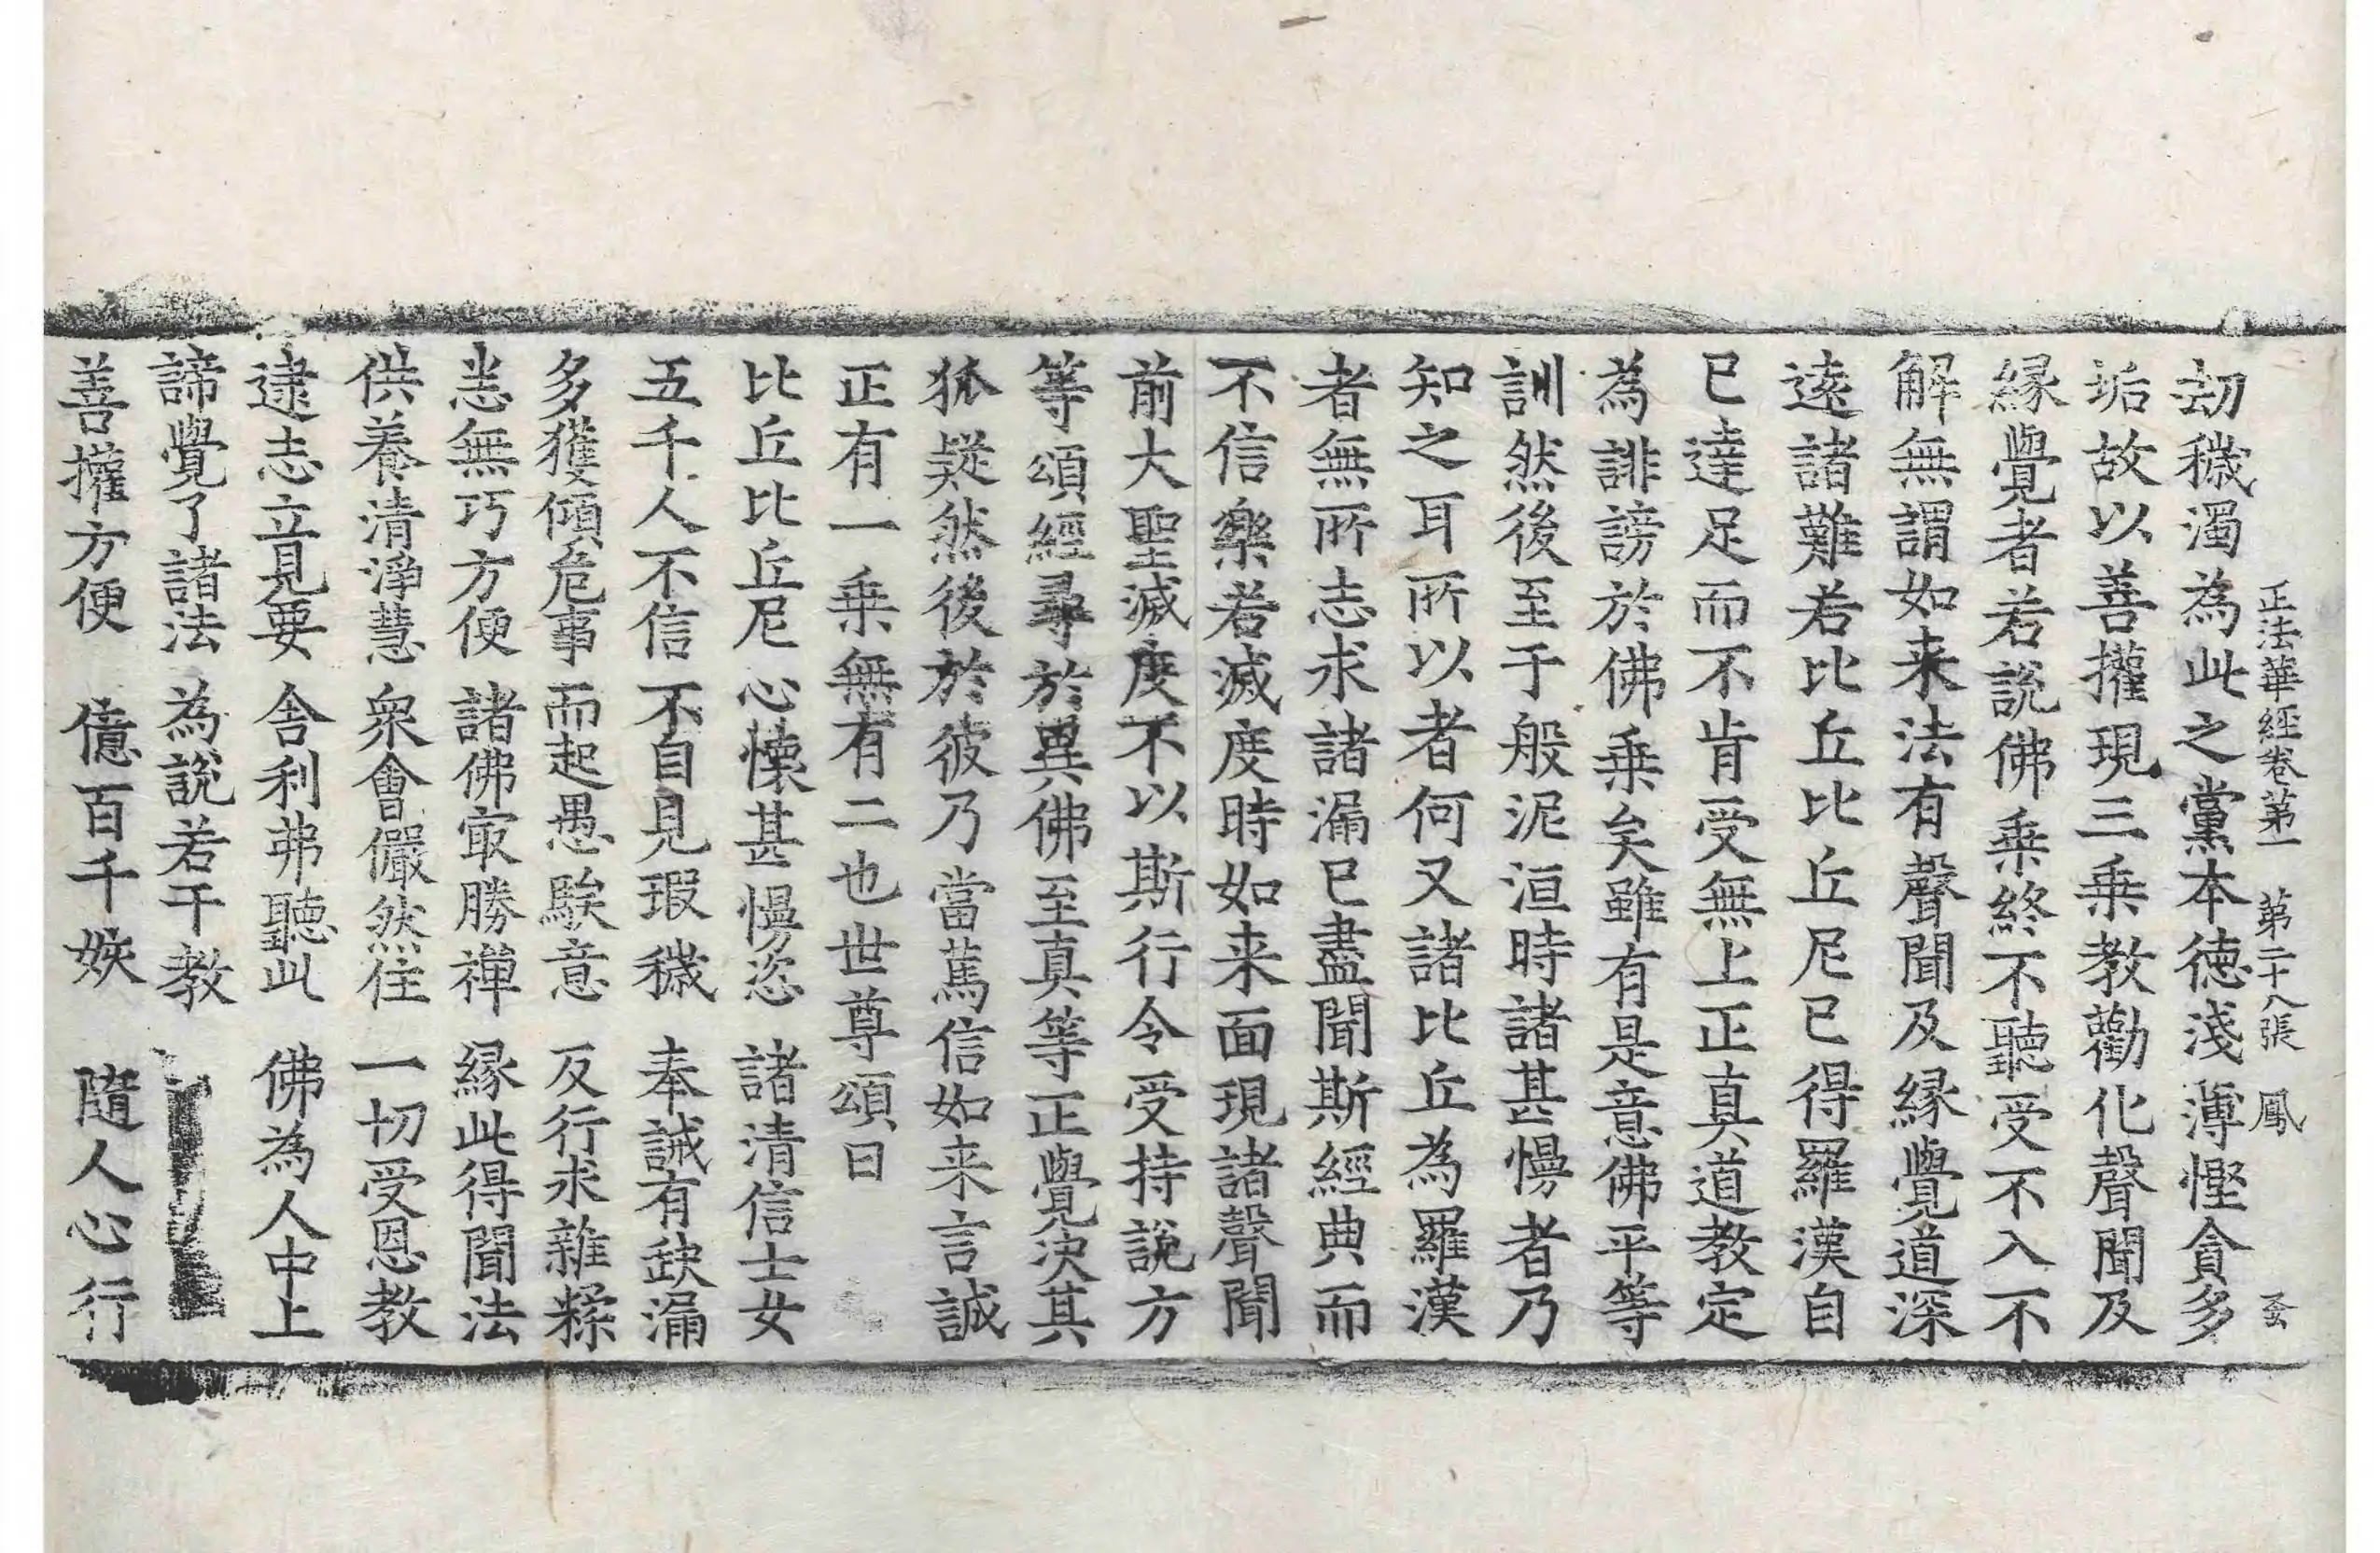 正法華經卷第一 第二十八張 鳳
刧穢濁為此之黨本德淺薄慳貪多
垢故以善權現三乗教勸化聲聞及
縁覺者若說佛乗終不聽受不入不
解無謂如来法有聲聞及縁覺道深
遠諸難若比丘比丘尼已得羅漢自
已達足而不肯受無上正真道教定
為誹謗於佛乗矣雖有是意佛平等
訓然後至于般泥洹時諸甚慢者乃
知之耳所以者何又諸比丘為羅漢
者無所志求諸漏已盡聞斯經典而
不信樂若滅度時如来面現諸聲聞
前大聖滅度不以斯行令受持說方
等頌經尋於異佛至真等正覺决其
狐疑然後於彼乃當篤信如来言誠
正有一乗無有二也世尊頌曰
比丘比丘尼 心懷甚慢恣 諸清信士女
五千人不信 不自見瑕穢 奉誡有缺漏
多獲傾危事 而起愚騃意 反行求雜糅
恙無巧方便 諸佛㝡勝禪 縁此得聞法
供養清淨慧 衆會儼然住 一切受恩教
逮志立見要 舎利弗聽此 佛為人中上
諦覺了諸法 為說若干教
善權方便 億百千姟 隨人心行